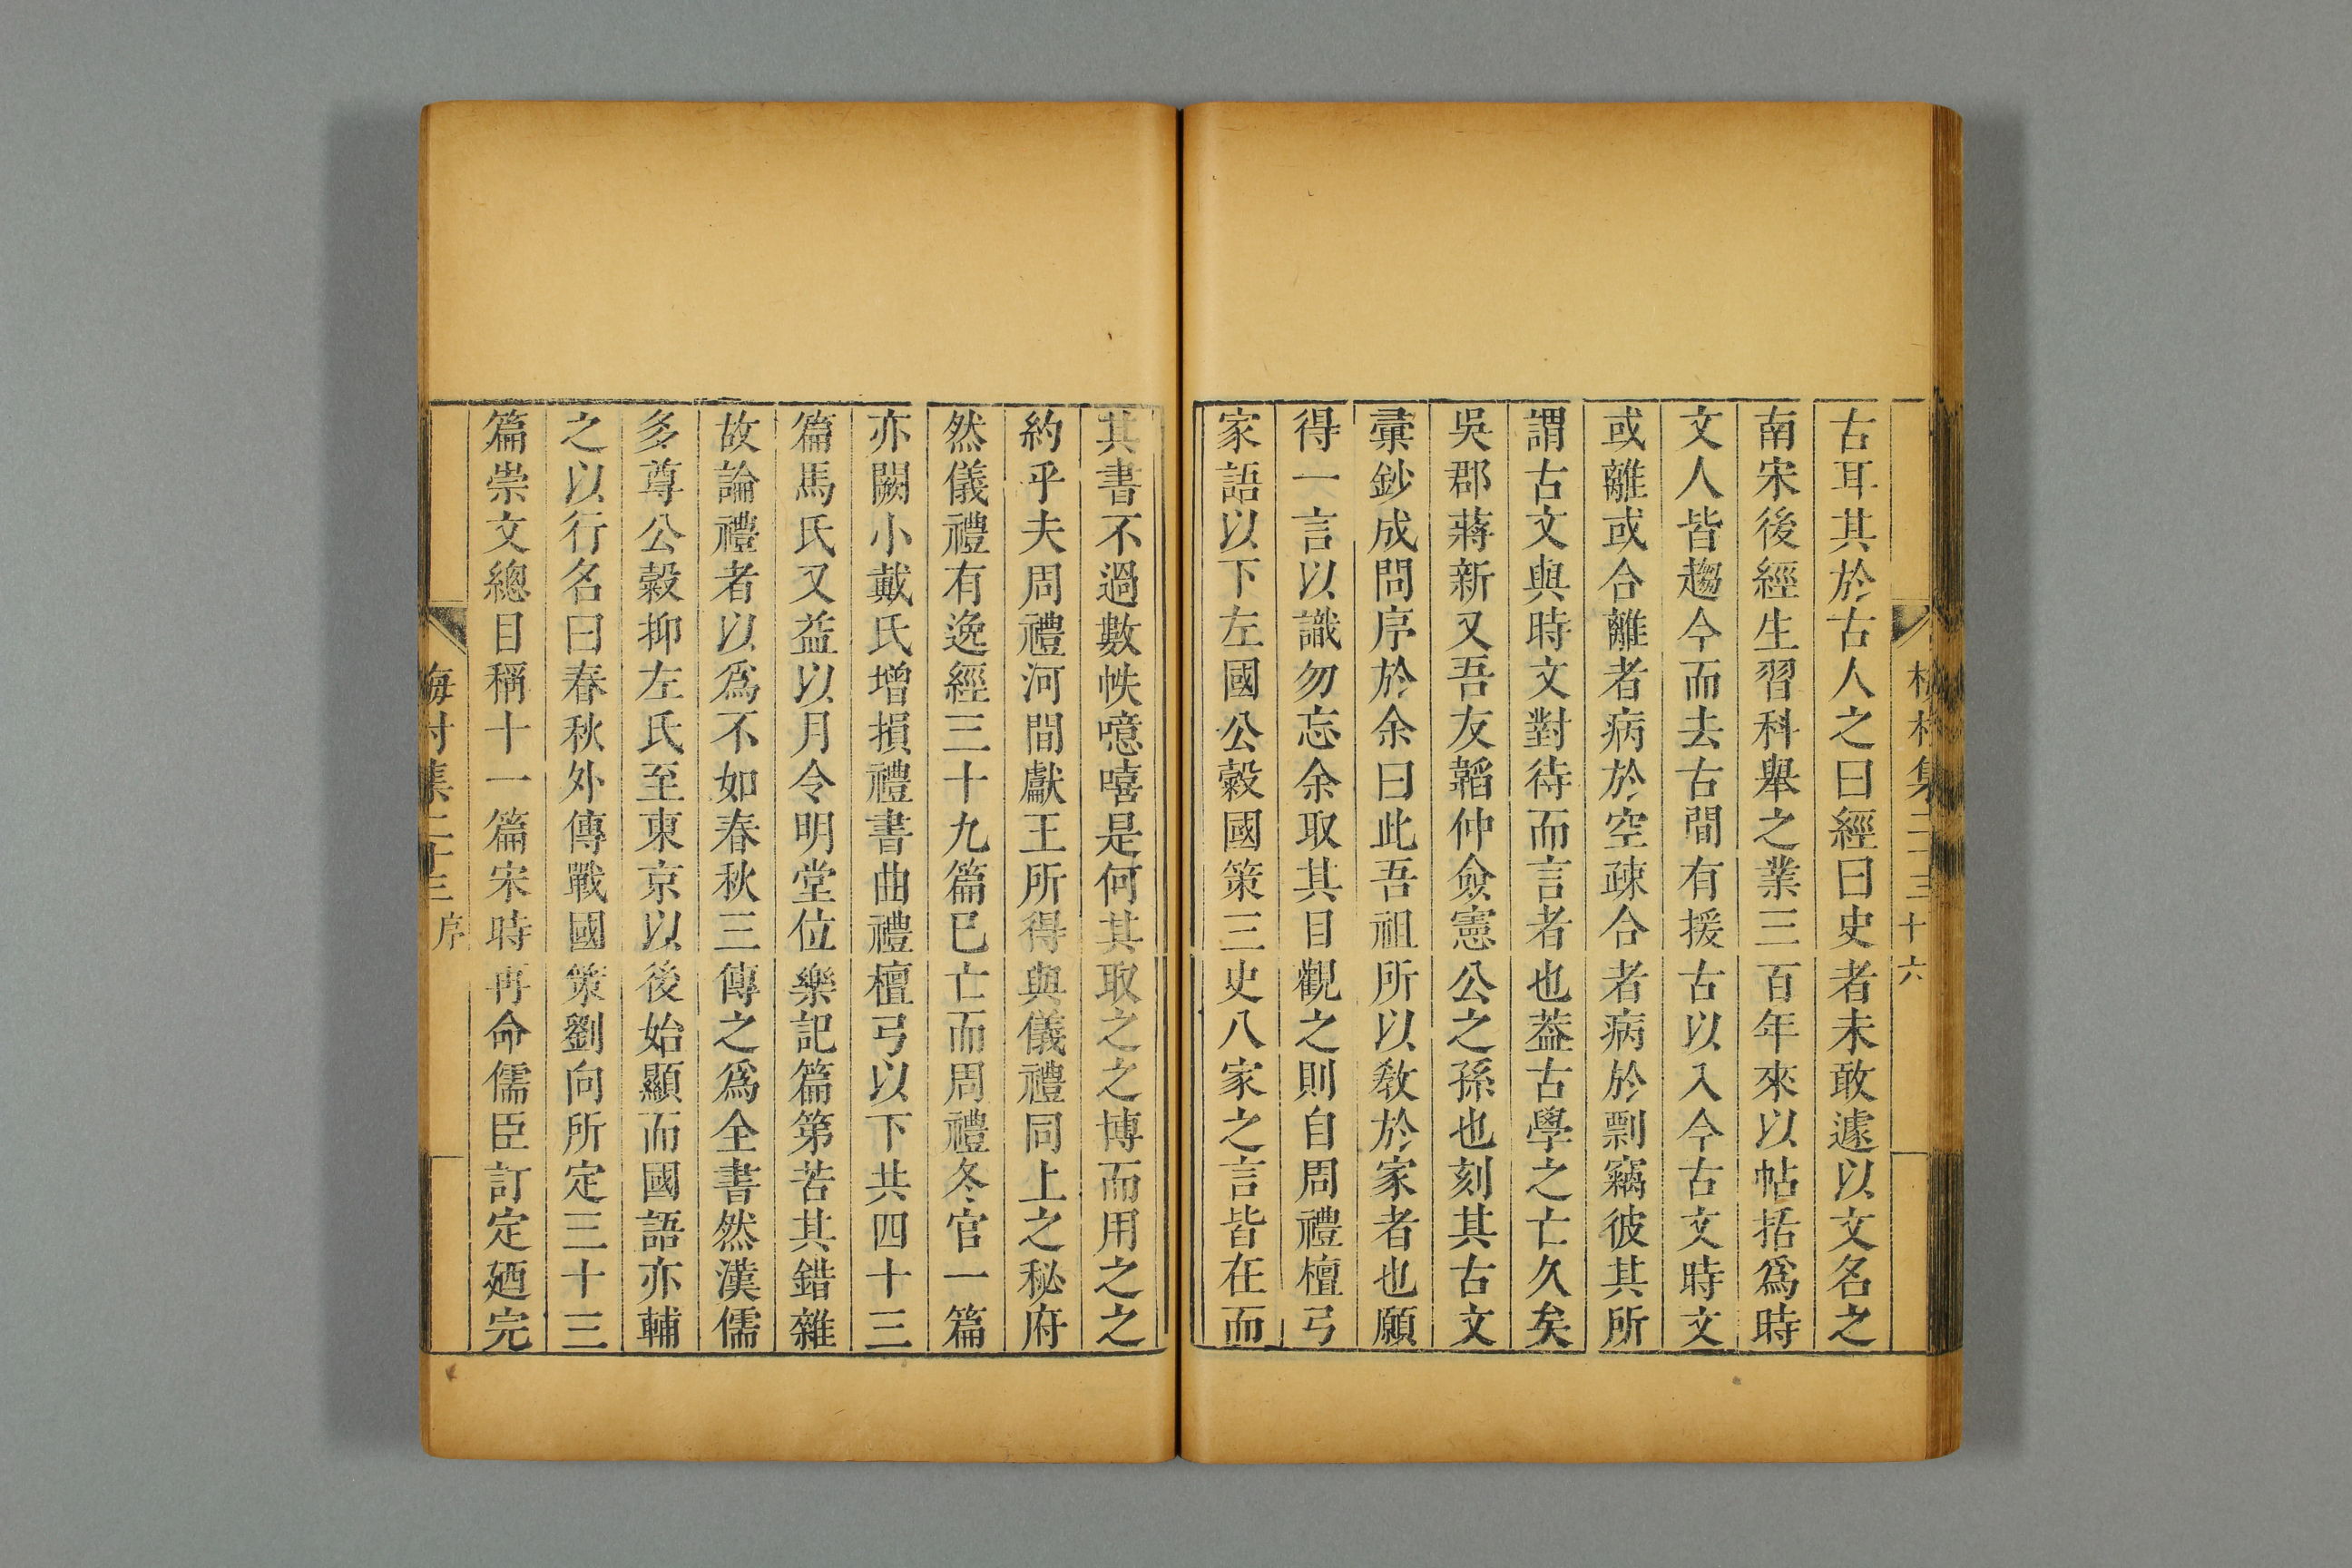 古耳其於古人之曰經曰史者未敢遽以文名之
南宋後經生習科舉之業三百年來以帖括爲時
文人皆趨今而去古間有援古以入今古文時文
或離或合離者病於空疎合者病於剽竊彼其所
謂古文與時文對待而言者也葢古學之亡久矣
吳郡蔣新又吾友韜仲僉憲公之孫也刻其古文
彚鈔成問序於余曰此吾祖所以敎於家者也願
得一言以識勿忘余取其目觀之則自周禮檀弓
家語以下左國公糓國策三史八家之言皆在而
其書不過數帙噫嘻是何其取之之博而用之之
約乎夫周禮河間獻王所得與儀禮同上之秘府
然儀禮有逸經三十九篇已亡而周禮冬官一篇
亦闕小戴氏增損禮書曲禮檀弓以下共四十三
篇馬氏又益以月令明堂位樂記篇第苦其錯雜
故論禮者以爲不如春秋三傳之爲全書然漢儒
多尊公糓抑左氏至東京以後始顯而國語亦輔
之以行名曰春秋外傳戰國策劉向所定三十三
篇崇文總目稱十一篇宋時再命儒臣訂定廼完
梅村集二十三 序